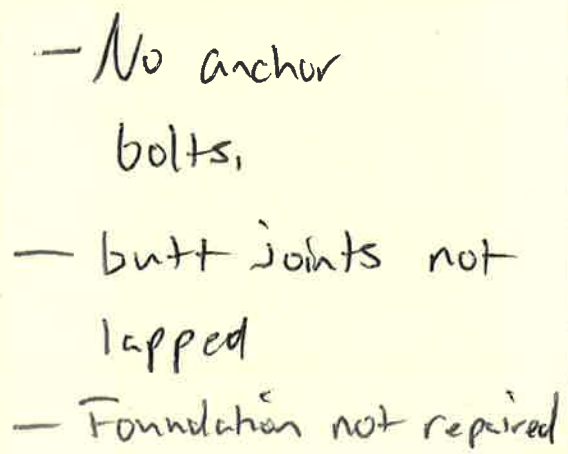 - No anchor
bolts,
- butt joints not
lapped
- Foundation not repaired